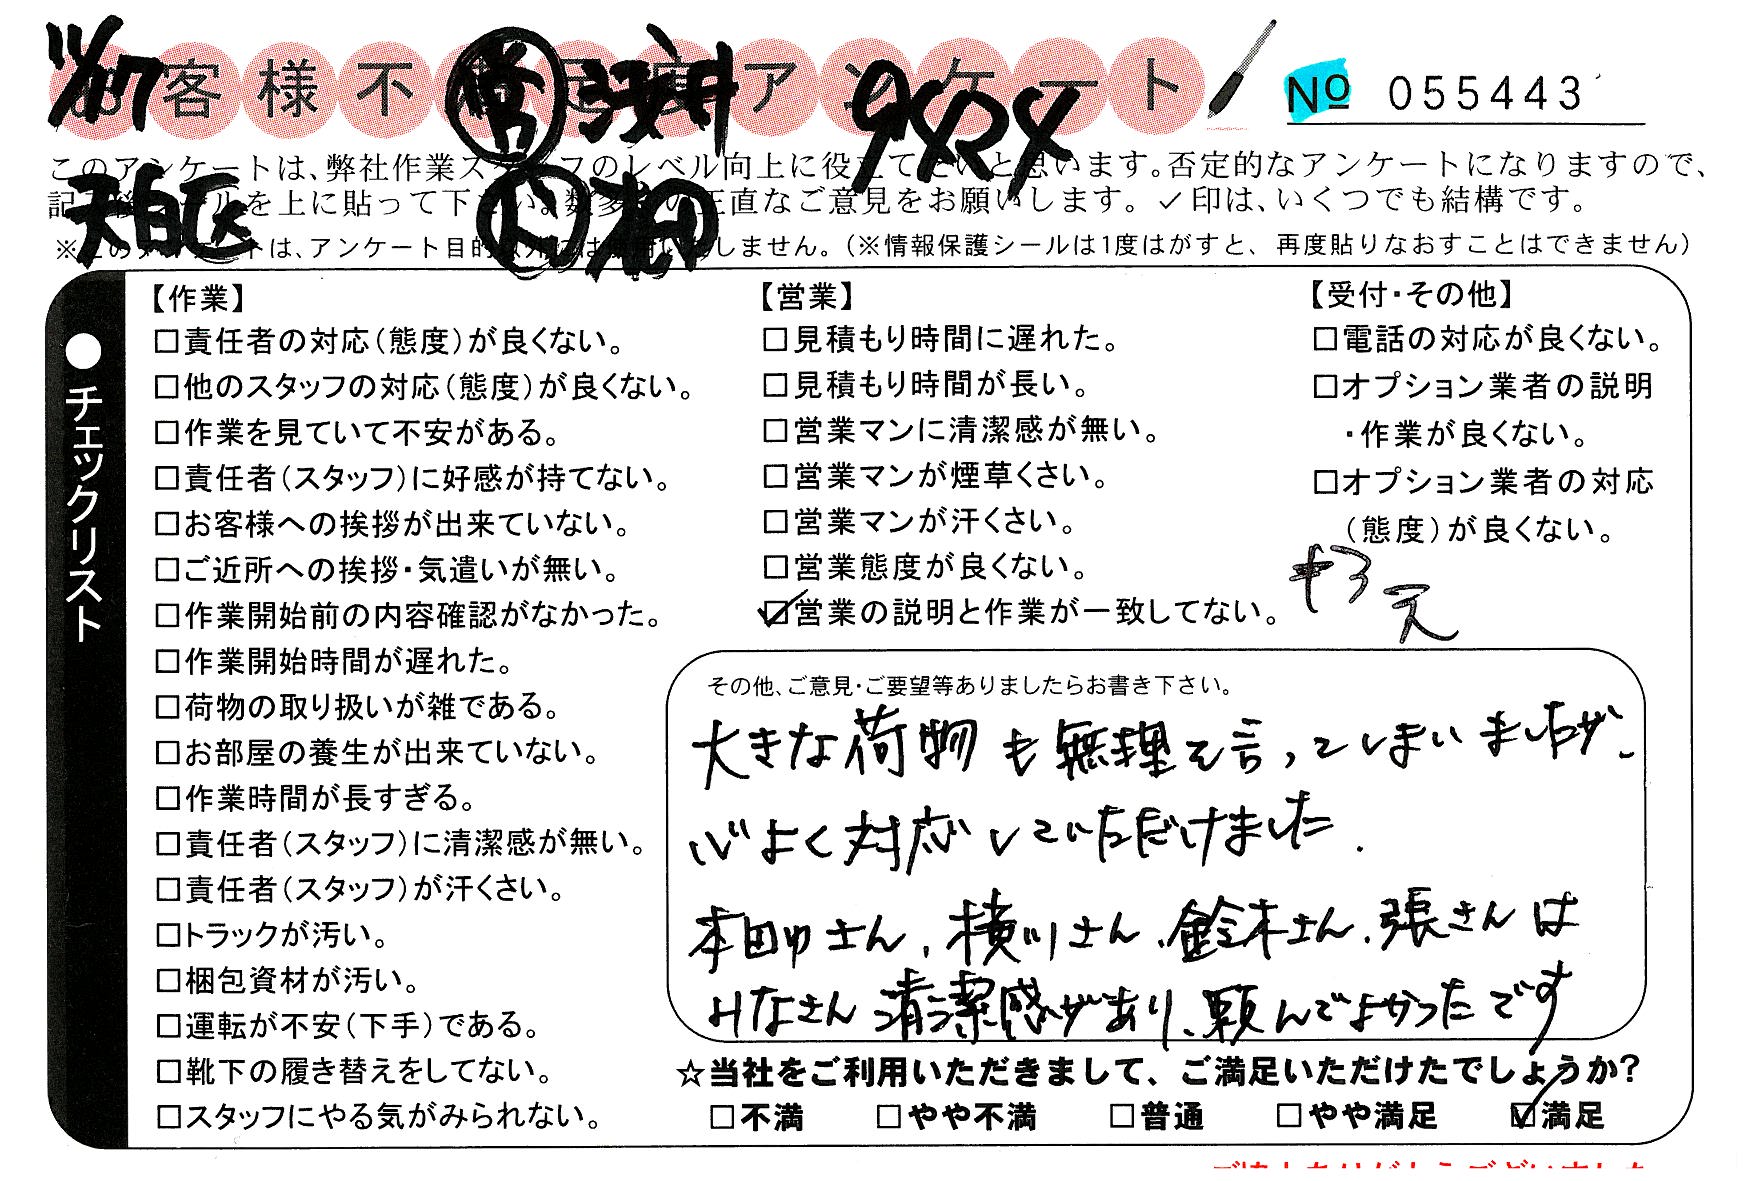 11/17 営 9424
お客様不満足度アンケート
No 055443
このアンケートは、弊社作業スタッフのレベル向上に役立てたいと思います。否定的なアンケートになりますので、
天白区 人 本田
記入後シールを上に貼って下さい。数多くの正直なご意見をお願いします。✓印は、いくつでも結構です。
※このアンケートは、アンケート目的以外には使用いたしません。(※情報保護シールは1度はがすと、再度貼りなおすことはできません)
●チェックリスト
【作業】
□責任者の対応(態度)が良くない。
□他のスタッフの対応(態度)が良くない。
□作業を見ていて不安がある。
□責任者(スタッフ)に好感が持てない。
□お客様への挨拶が出来ていない。
□ご近所への挨拶・気遣いが無い。
□作業開始前の内容確認がなかった。
□作業開始時間が遅れた。
□荷物の取り扱いが雑である。
□お部屋の養生が出来ていない。
□作業時間が長すぎる。
□責任者(スタッフ)に清潔感が無い。
□責任者(スタッフ)が汗くさい。
□トラックが汚い。
□梱包資材が汚い。
□運転が不安(下手)である。
□靴下の履き替えをしてない。
□スタッフにやる気がみられない。
【営業】
□見積もり時間に遅れた。
□見積もり時間が長い。
□営業マンに清潔感が無い。
□営業マンが煙草くさい。
□営業マンが汗くさい。
□営業態度が良くない。
☑営業の説明と作業が一致してない。
【受付・その他】
□電話の対応が良くない。
□オプション業者の説明
・作業が良くない。
□オプション業者の対応
(態度)が良くない。
その他、ご意見・ご要望等ありましたらお書き下さい。
大きな荷物も無理を言ってしまいましたが、
心よく対応していただけました.
本田ゆさん、横川さん、鈴木さん、張さんは
みなさん清潔感があり、頼んでよかったです
☆当社をご利用いただきまして、ご満足いただけたでしょうか?
□不満 □やや不満 □普通 □やや満足 ☑満足